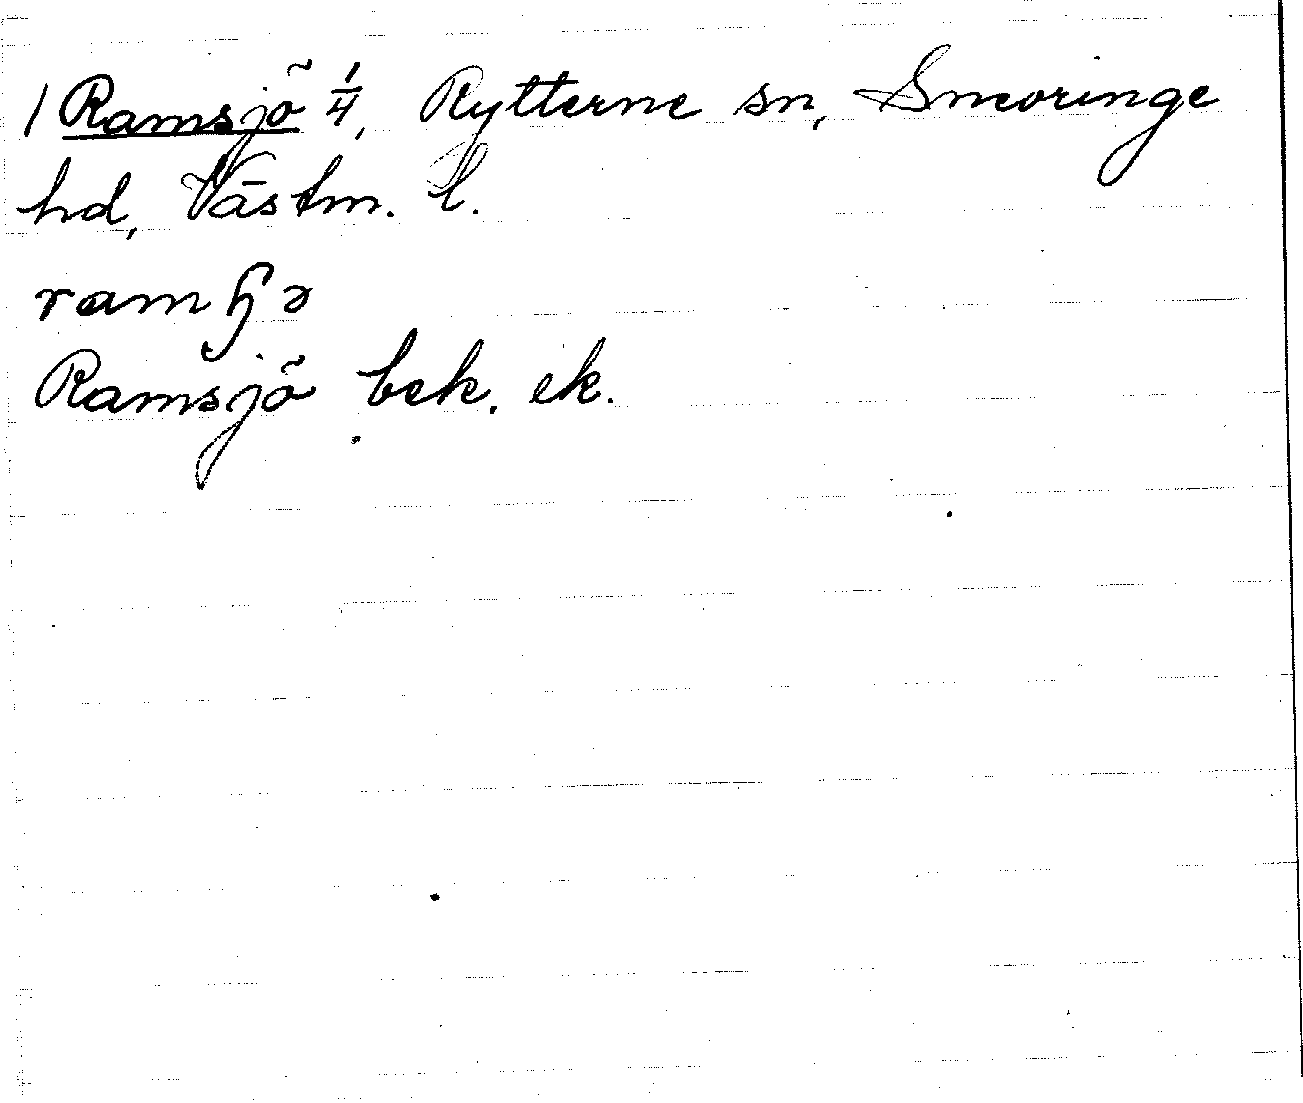 1 Ramsjö 1/4, Rytterne sn, Snevringe
hd, Västm. l.
ramɧə
Ramsjö bek. ek.